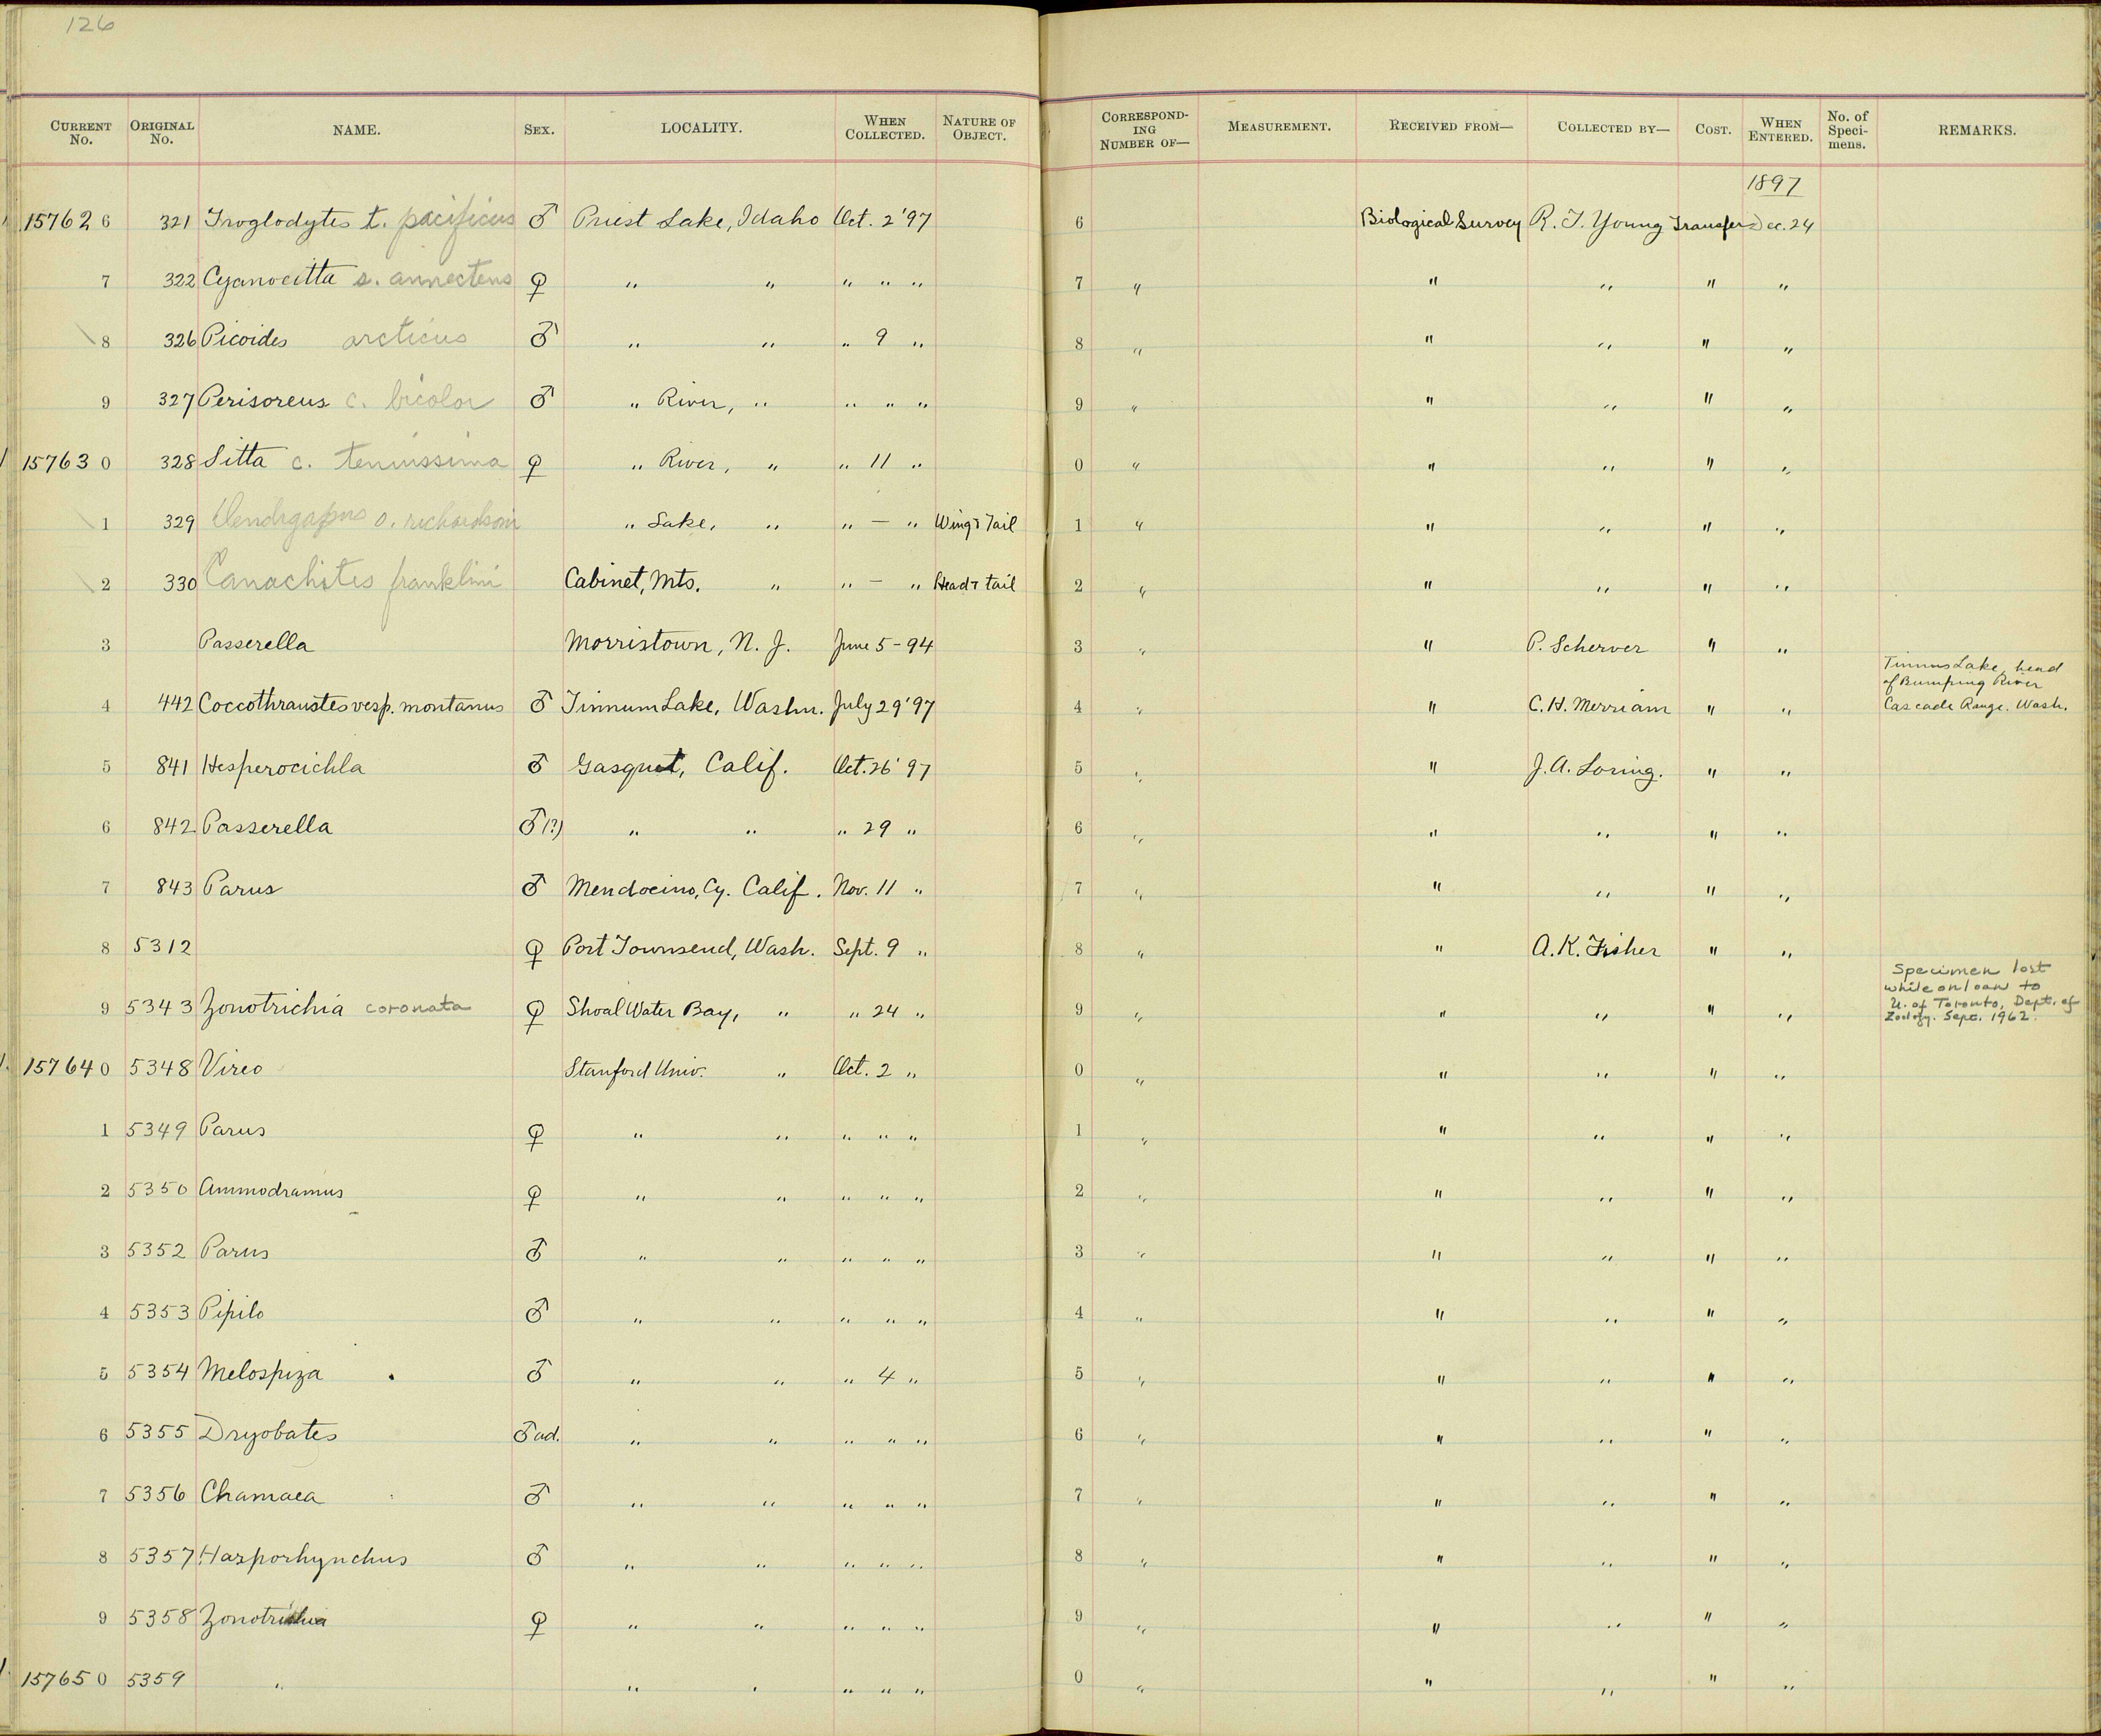 126
CURRENT No. ORIGINAL No. NAME. SEX. LOCALITY. WHEN COLLECTED. NATURE OF OBJECT. CORRESPONDING NUMBER OF— MEASUREMENT. RECEIVED FROM— COLLECTED BY— COST. WHEN ENTERED. No. of Specimens. REMARKS.
1897
15762 6 321 Troglodytes t. pacificus ♂ Priest Lake, Idaho Oct. 2 '97 6 Biological Survey R. T. Young Transfer Dec. 24
7 322 Cyanocitta s. annectens ♀ " " " " " 7 " " " " "
8 326 Picoides arcticus ♂ " " " 9 " 8 " " " " "
9 327 Perisoreus c. bicolor ♂ " River, " " " " 9 " " " " "
15763 0 328 Sitta c. tenuissima ♀ " River, " " 11 " 0 " " " " "
1 329 Dendragapus o. richardsoni " Lake, " " — " Wing & Tail 1 " " " " "
2 330 Canachites franklini Cabinet, Mts. " " — " Head & tail 2 " " " " "
3 Passerella Morristown, N. J. June 5 - 94 3 " " P. Scherver " "
4 442 Coccothraustes vesp. montanus ♂ Tinnum Lake, Washn. July 29 '97 4 " " C. H. Merriam " " Tinnus Lake, head
of Bumping River
Cascade Range. Wash.
5 841 Hesperocichla ♂ Gasquet, Calif. Oct. 26 '97 5 " " J. A. Loring. " "
6 842 Passerella ♂(?) " " " 29 " 6 " " " " "
7 843 Parus ♂ Mendocino, Cy. Calif. Nov. 11 " 7 " " " " "
8 5312 ♀ Port Townsend, Wash. Sept. 9 " 8 " " A. K. Fisher " "
9 5343 Zonotrichia coronata ♀ Shoal Water Bay, " " 24 " 9 " " " " " Specimen lost
while on loan to
U. of Toronto, Dept. of
Zoology. Sept. 1962.
15764 0 5348 Vireo Stanford Univ. " Oct. 2 " 0 " " " " "
1 5349 Parus ♀ " " " " " 1 " " " " "
2 5350 Ammodramus ♀ " " " " " 2 " " " " "
3 5352 Parus ♂ " " " " " 3 " " " " "
4 5353 Pipilo ♂ " " " " " 4 " " " " "
5 5354 Melospiza ♂ " " " 4 " 5 " " " " "
6 5355 Dryobates ♂ ad. " " " " " 6 " " " " "
7 5356 Chamaea ♂ " " " " " 7 " " " " "
8 5357 Harporhynchus ♂ " " " " " 8 " " " " "
9 5358 Zonotrichia ♀ " " " " " 9 " " " " "
15765 0 5359 " " " " " " 0 " " " " "